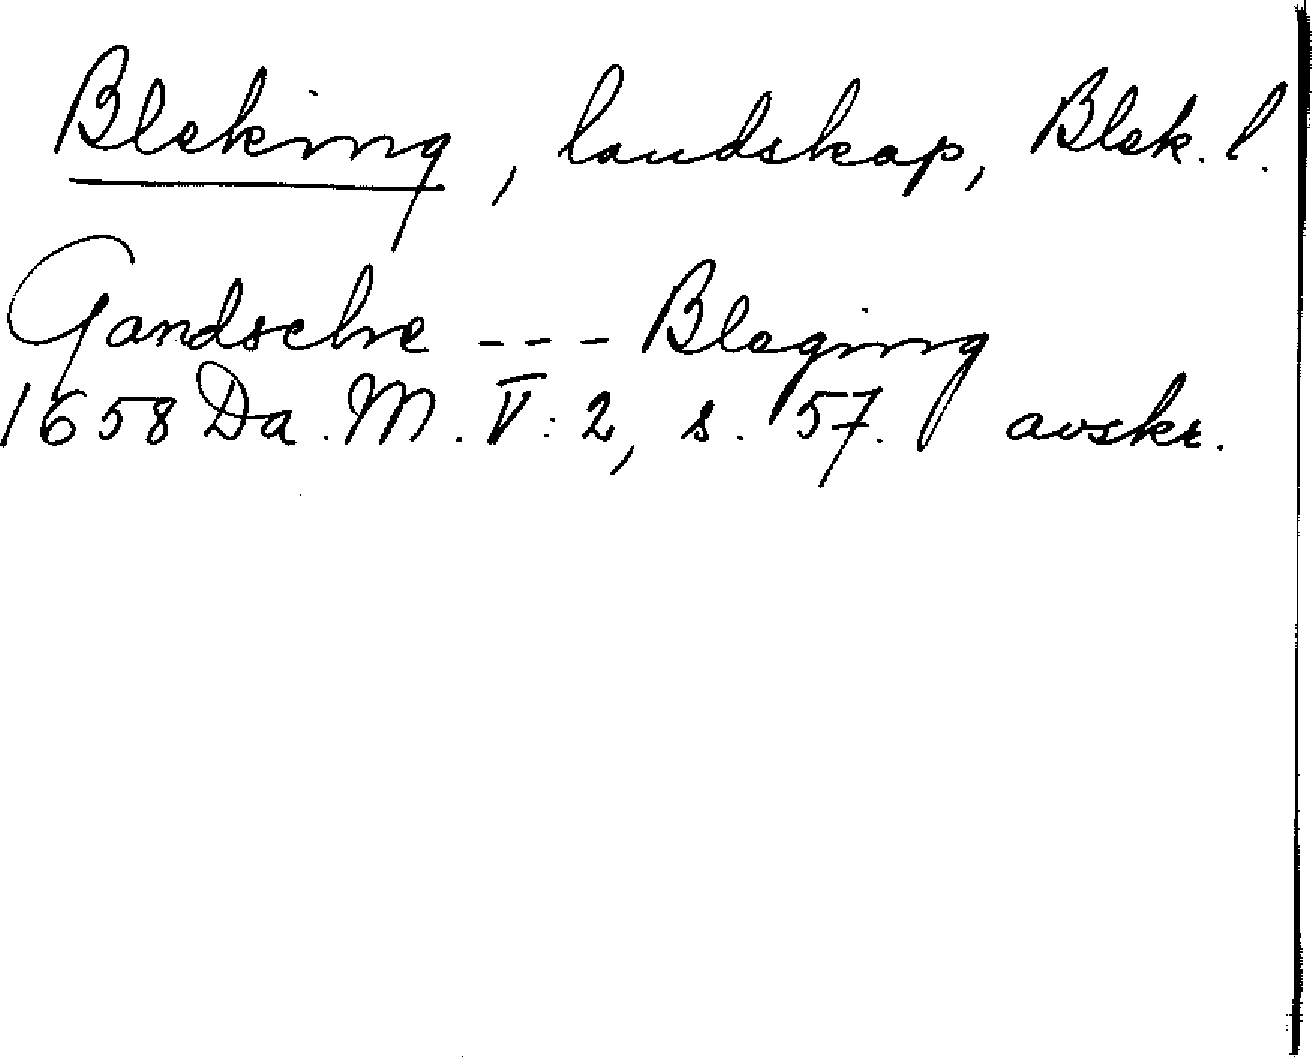 Bleking, landskap, Blek. l.
Gandsche --- Bleging
1658 Da. M. V: 2, s. 57. avskr.